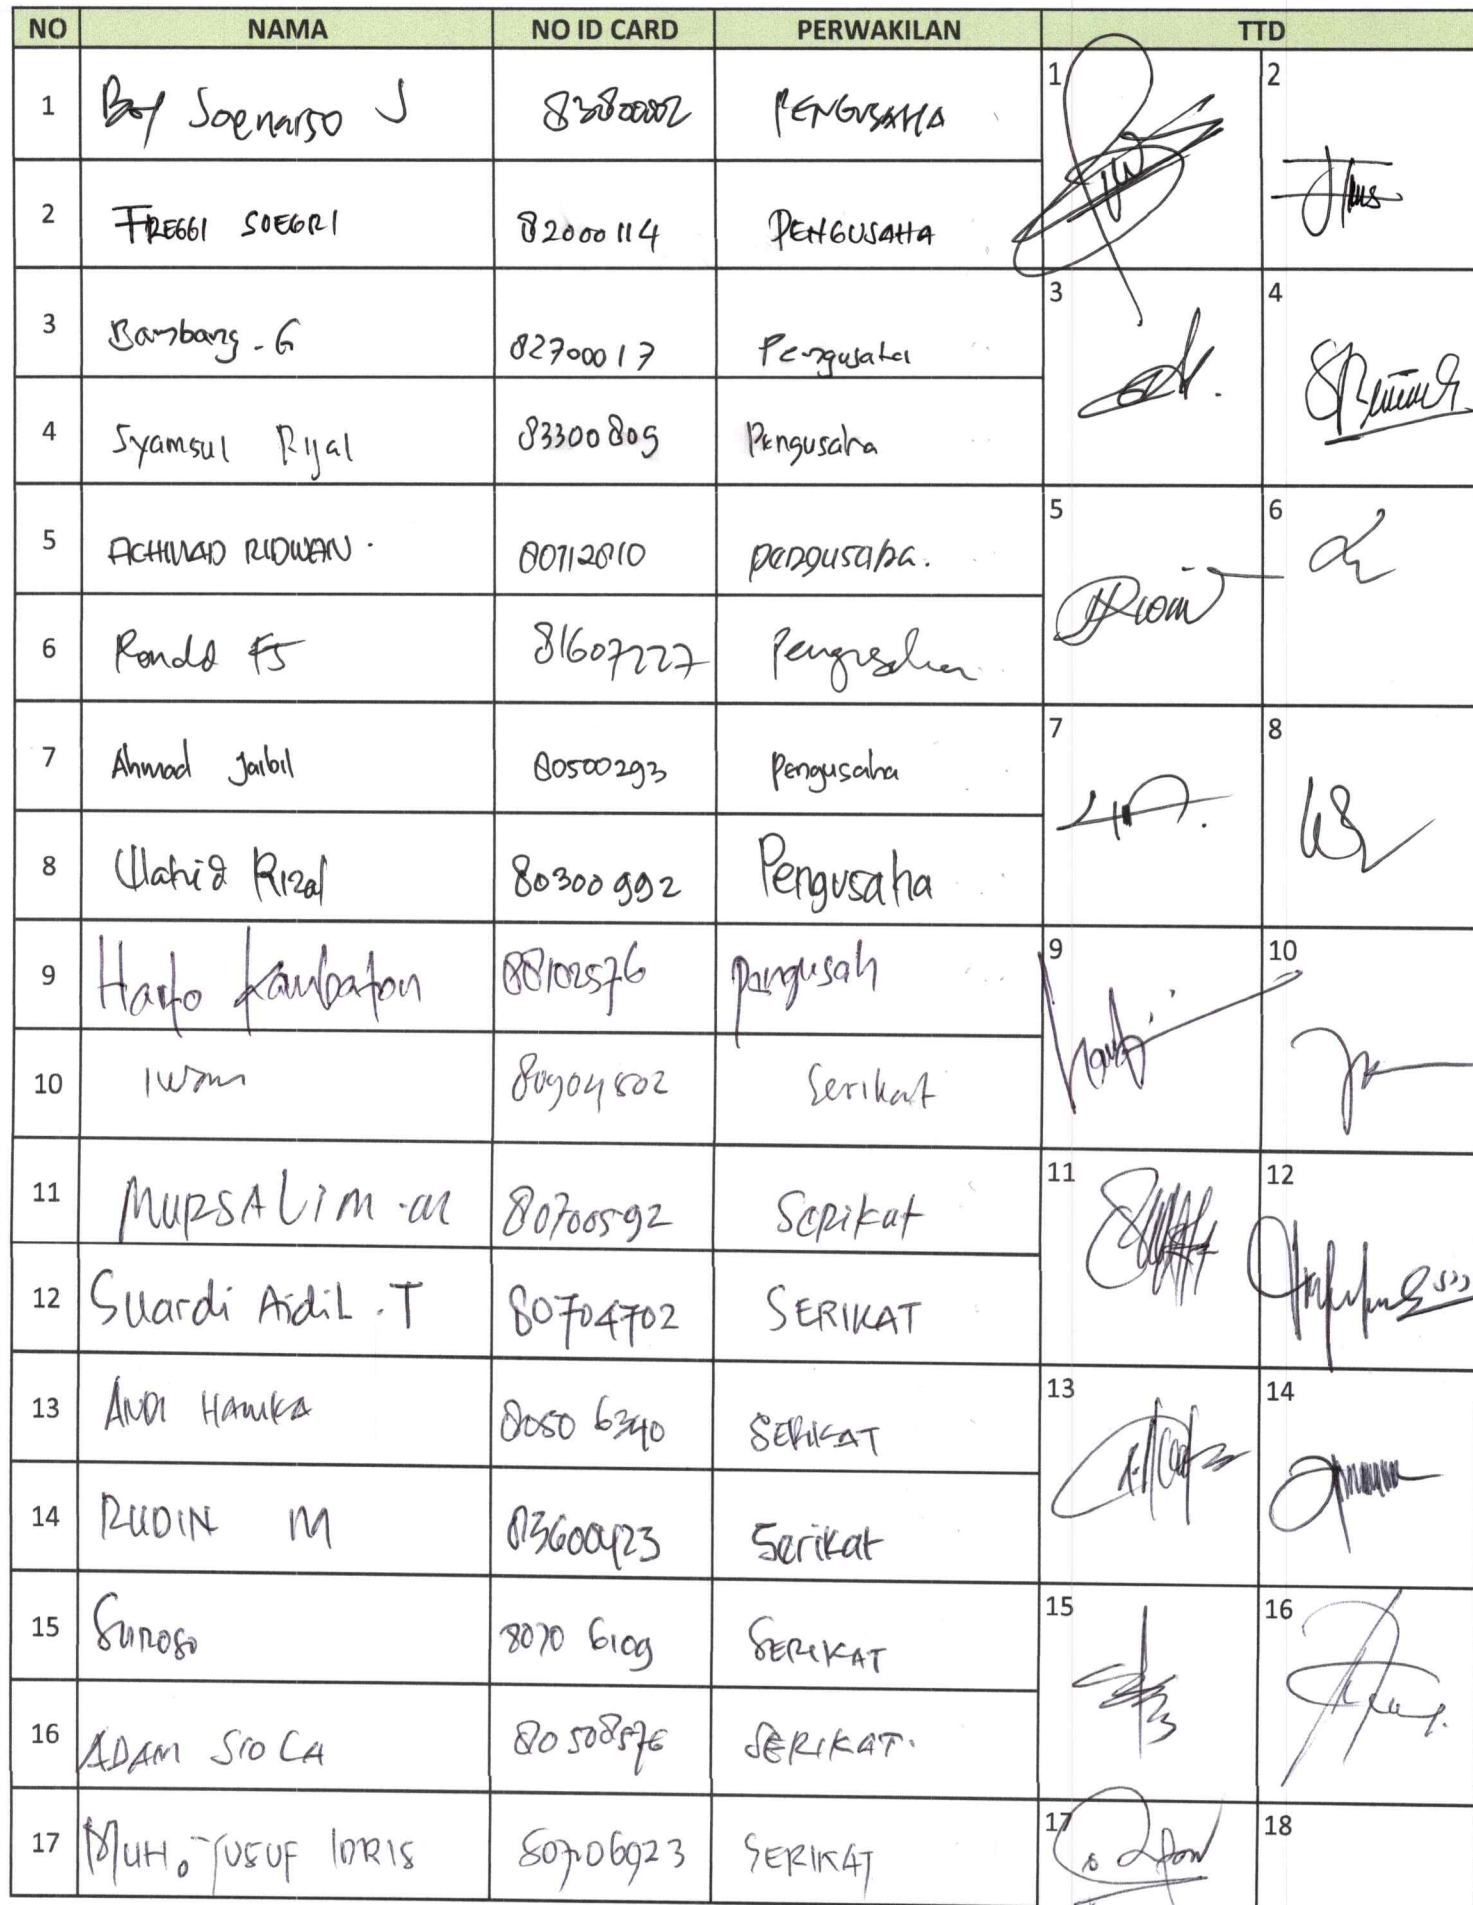 NO NAMA NO ID CARD PERWAKILAN TTD
1 Boy Soenarso J 83800002 PENGUSAHA 1 2
2 FREGGI SOEGRI 82000114 PENGUSAHA
3 Bambang - G 82700017 Pengusaha 3 4
4 Syamsul Rijal 83300809 Pengusaha
5 ACHMAD RIDWAN. 80112810 pengusaha. 5 6
6 Ronald FS 81607227 Pengusaha
7 Ahmad Jaibil 80500293 Pengusaha 7 8
8 Wahid Rizal 80300992 Pengusaha
9 Harto 88102576 pengusah 9 10
10 Iwan 80904502 Serikat
11 MURSALIM .M 80700592 Serikat 11 12
12 Suardi AidiL .T 80704702 SERIKAT
13 ANDI HAMKA 8050 6340 SERIKAT 13 14
14 RUDIN M 83600423 Serikat
15 Suroso 8070 6109 SERIKAT 15 16
16 ADAM 80508576 SERIKAT.
17 MUH. YUSUF IDRIS 80706923 SERIKAT 17 18